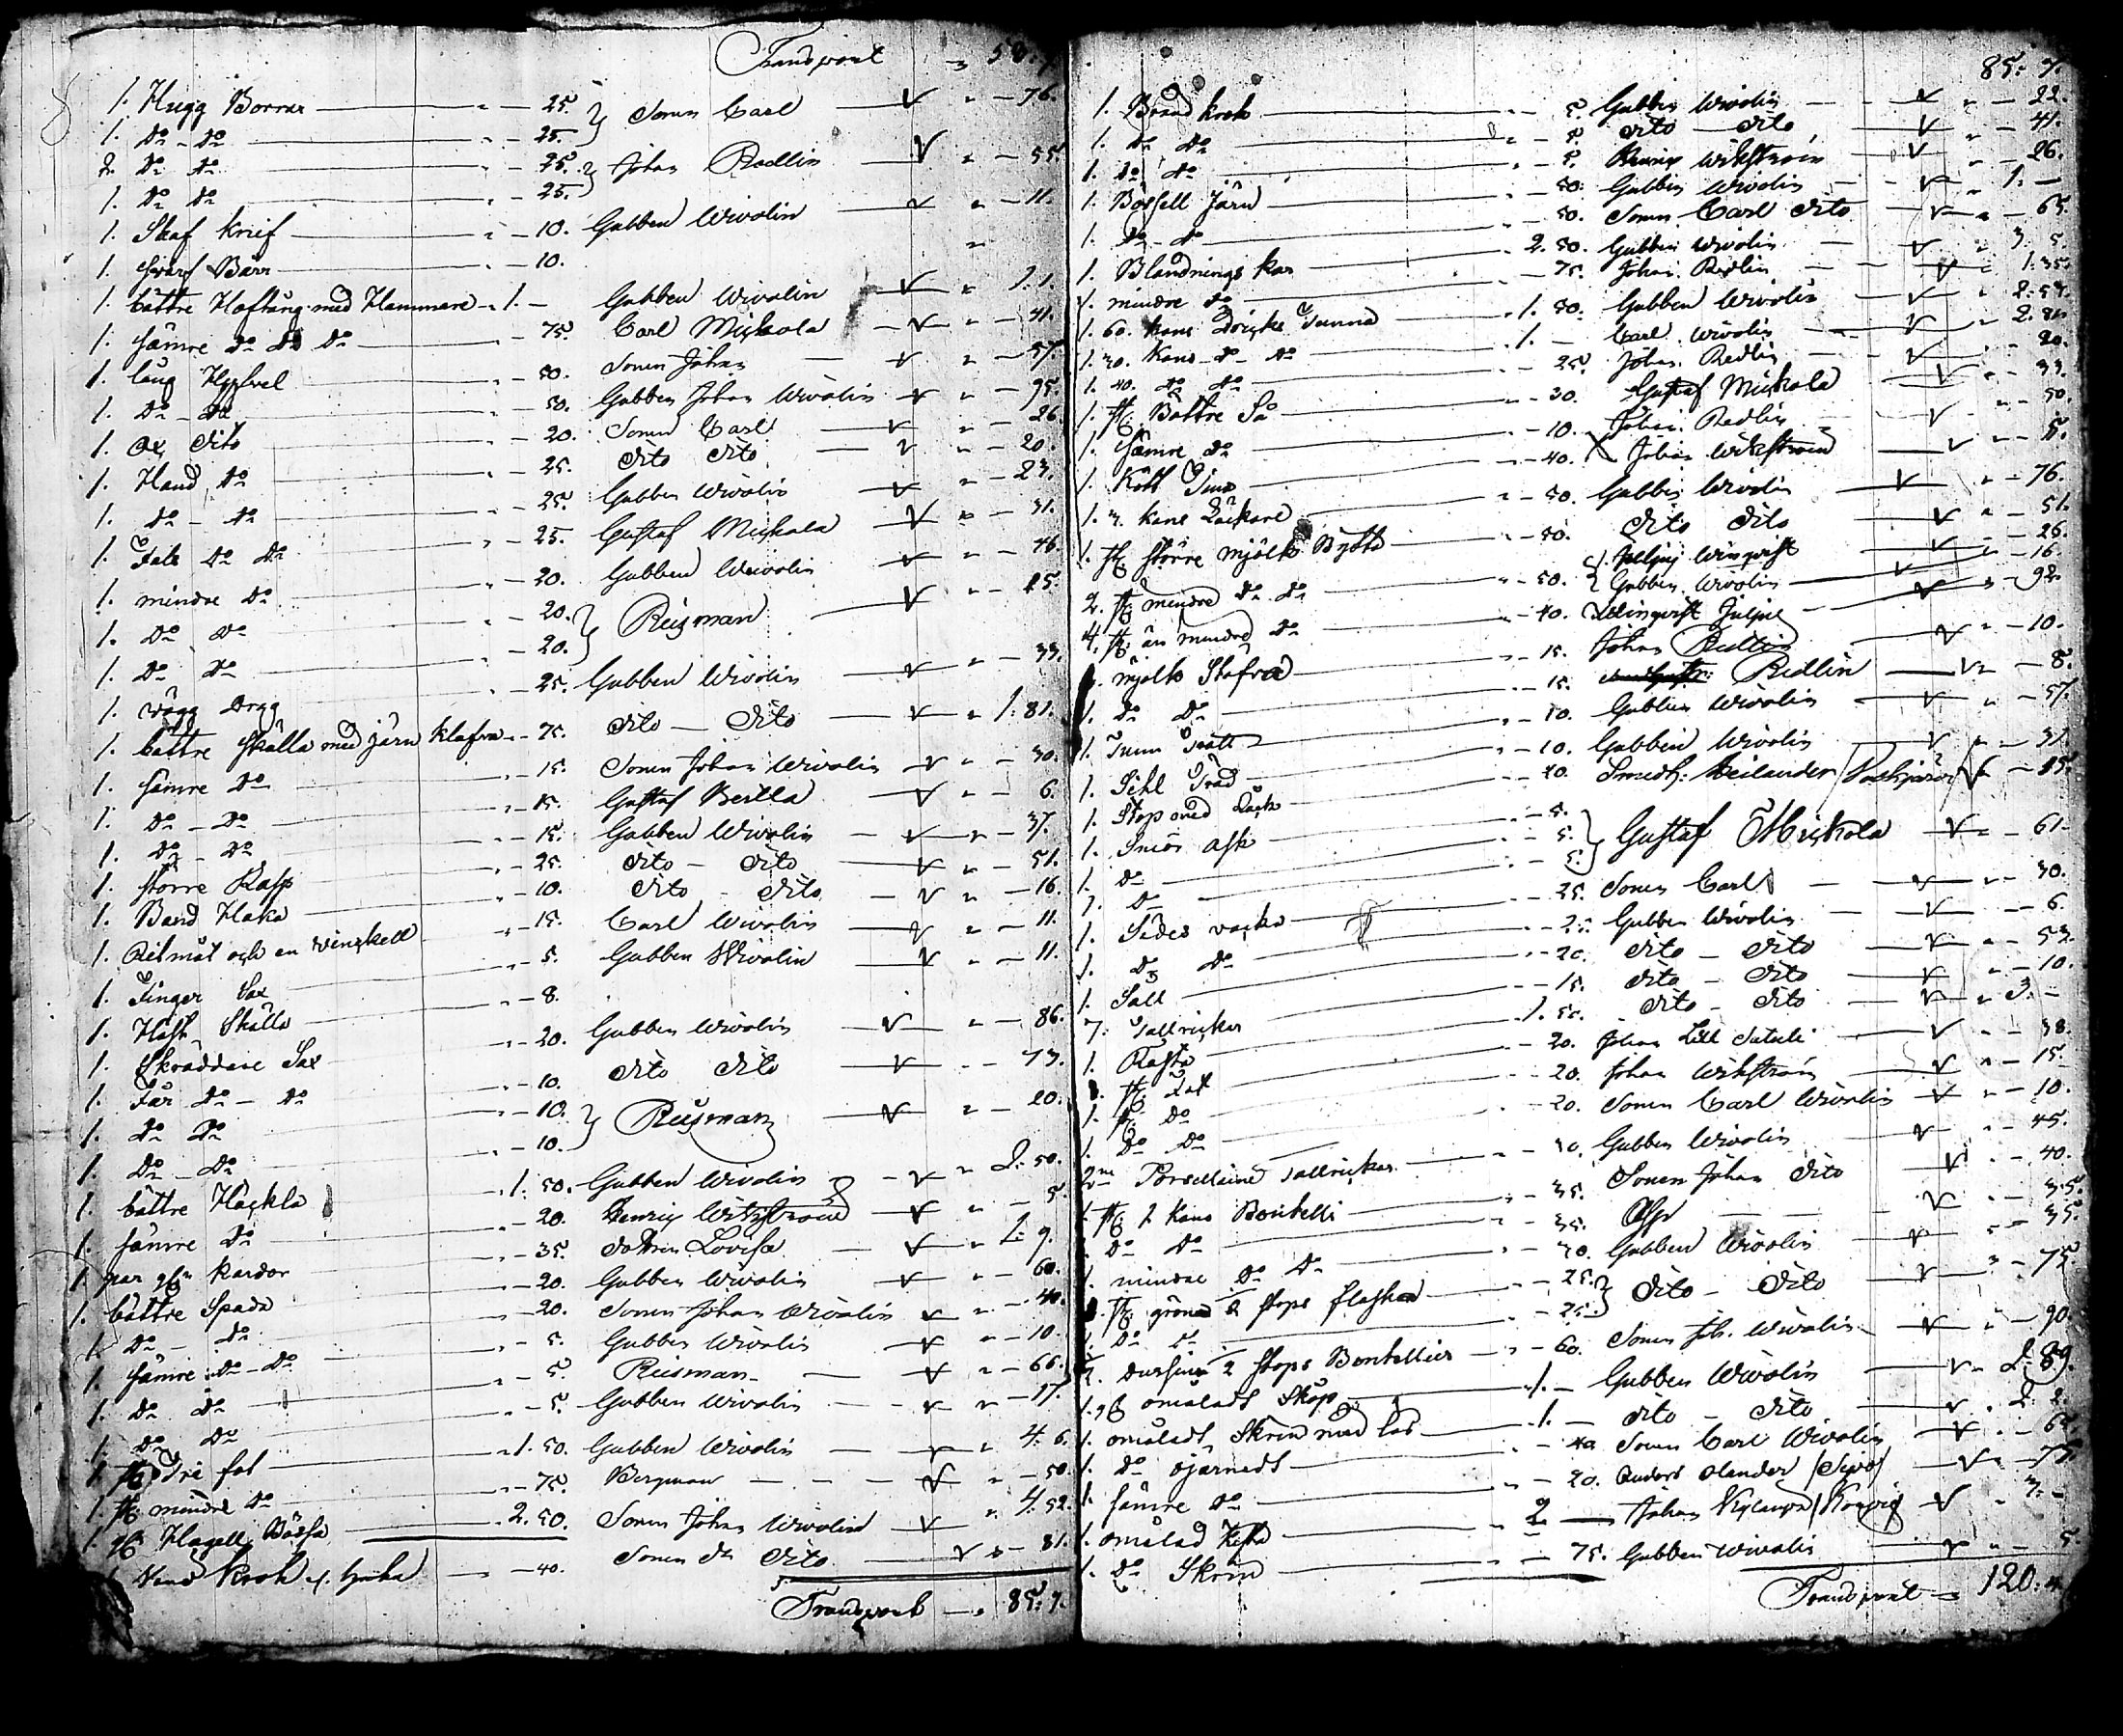 Transport 58. 7.
1. Hugg Borrar 25. } Sonen Carl V 76.
1. Do Do 25.
2. Do Do 25. } Johan Redlin V 55.
1. Do Do 25.
1. Skaf knif 10. Gubben Wivolin V 11.
1. Svarf Bärr 10.
1. båttre Hoftång med Hammare 1. Gubben Wivolin V 1. 1.
1. sämre Do Do Do 75. Carl Mickola V 41.
1. lång Hyfvel 50. Sonen Johan V 57.
1. Do Do 50. Gubben Johan Wivolin V 95.
1. Ox dito 20. Sonen Carl V 26.
1. Hand Do 25. dito dito V 20.
1. Do Do 25. Gubben Wivolin V 23.
1. Do Do 25. Gustaf Mickola V 31.
1. mindre Do 20. Gubben Wivolin V 46.
1. Do Do 20. } Reisman V 25.
1. Do Do 20.
1. vägg 25. Gubben Wivolin V 33.
1. båttre skålla med järn klafva 75. dito dito V 1: 81.
1. sämre Do 15. Sonen Johan Wivolin V 30.
1. Do Do 15. Gustaf Bertla V 6.
1. Do Do 15. Gubben Wivolin V 37.
1. större Rasp 25. dito dito V 51.
1. Band Hake 10. dito dito V 16.
1. Ritmåt och en vinckell 15. Carl Wivolin V 11.
1. Finger Sax 5. Gubben Wivolin V 11.
1. Häst Skålla 8.
1. Skräddare Sax 20. Gubben Wivolin V 86.
1. Får Do Do 10. dito dito V 73.
1. Do Do 10. } Reisman V 20.
1. Do Do 10.
1. båttre Häckla 1. 50. Gubben Wivolin V 2. 50.
1. sämre Do 20. Henric Wikström V 5.
1. par kardor 35. dottren Lovisa V 1. 9.
1. båttre Spada 20. Gubben Wivolin V 60.
1. Do Do 20. Sonen Johan Wivolin V 40.
1. sämre Do Do 5. Gubben Wivolin V 10.
1. Do Do 5. Reisman V 66.
1. Do Do 5. Gubben Wivolin V 17.
1. st. Tre fot 1. 50. Gubben Wivolin V 4. 6.
1. st. mindre Do 75. Bergman V 50.
1. st. Hagell Bössa 2. 50. Sonen Johan Wivolin V 4. 52.
Krok 40. Sonen Do dito V 81.
Transport 85: 7.
85: 7.
1. Brand krok 5. Gubben Wivolin V 22.
1. Do Do 5. dito dito V 41.
1. Do Do 5. Henric Wikström V 26.
1. Bössell Järn 50. Gubben Wivolin V 1.
1. Do Do 50. Sonen Carl dito V 65.
1. Blandnings kar 2. 50. Gubben Wivolin V 3. 5.
1. mindre Do 75. Johan Redlin V 1. 35.
1. 60. kans Dricke Tunna 1. 50. Gubben Wivolin V 2: 57.
1. 30. kans Do Do 1. Carl Wivolin V 2. 80.
1. 40. Do Do 25. Johan Redlin V 20.
1. st. Båttre Så 30. Gustaf Mickola V 33.
1. sämre Do 10. Johan Redlin V 50.
1. Kött Tina 40. Johan Wikström V 5.
1. 3. kans Läckare 50. Gubben Wivolin V 76.
1. st. större mjölk Bytta 50. dito dito V 51.
2. st. mindre Do Do 50. } Winqvist V 26.
Gubben Wivolin V 16.
4. st. än mindre Do 40. Winqvist V 92.
1. mjölk Stäfva 15. Johan Redlin V 10.
1. Do Do 15. Redlin V 8.
1. Tratt 10. Gubben Wivolin V 57.
1. Tråd 10. Gubben Wivolin V 31.
1. Stop med Läck 40. Smedh: Keilander V 25.
1. Smör ask 5. } Gustaf Mickola V 61.
1. Do 5.
1. Do 5.
1. Sädes vacka 25. Sonen Carl V 30.
1. Do Do 25. Gubben Wivolin V 6.
1. Såll 20. dito dito V 53.
7. Tallrickar 15. dito dito V 10.
1. 1. 50. dito dito V 3.
1. st. Fat 20. Johan Lill V 38.
1. st. Do 20. Johan Wikström V 15.
1. Do Do 20. Sonen Carl Wivolin V 10.
2ne Porcellaine tallrickar 30. Gubben Wivolin V 45.
1. st. 1 Kans Boutelli 35. Sonen Johan dito V 40.
1. Do Do 35. V 35.
1. mindre Do Do 20. Gubben Wivolin V 35.
1. st. gröna 2 stops flaskor 25. } dito dito V 75.
1. Do Do 25.
2 stops Boutellier 60. Sonen Joh. Wivolin V 90.
1. st. omåladt Skåp 1. Gubben Wivolin V 2. 89.
1. omåladt Skrin med lås 1. dito dito V 2. 2.
1. Do ojärnadt 40. Sonen Carl Wivolin V 65.
1. sämre Do 20. Anders Olander V 75.
1. omålad Kista 2. Johan V 3.
1. Do Skrin 75. Gubben Wivolin V 5.
Transport 120: 4.